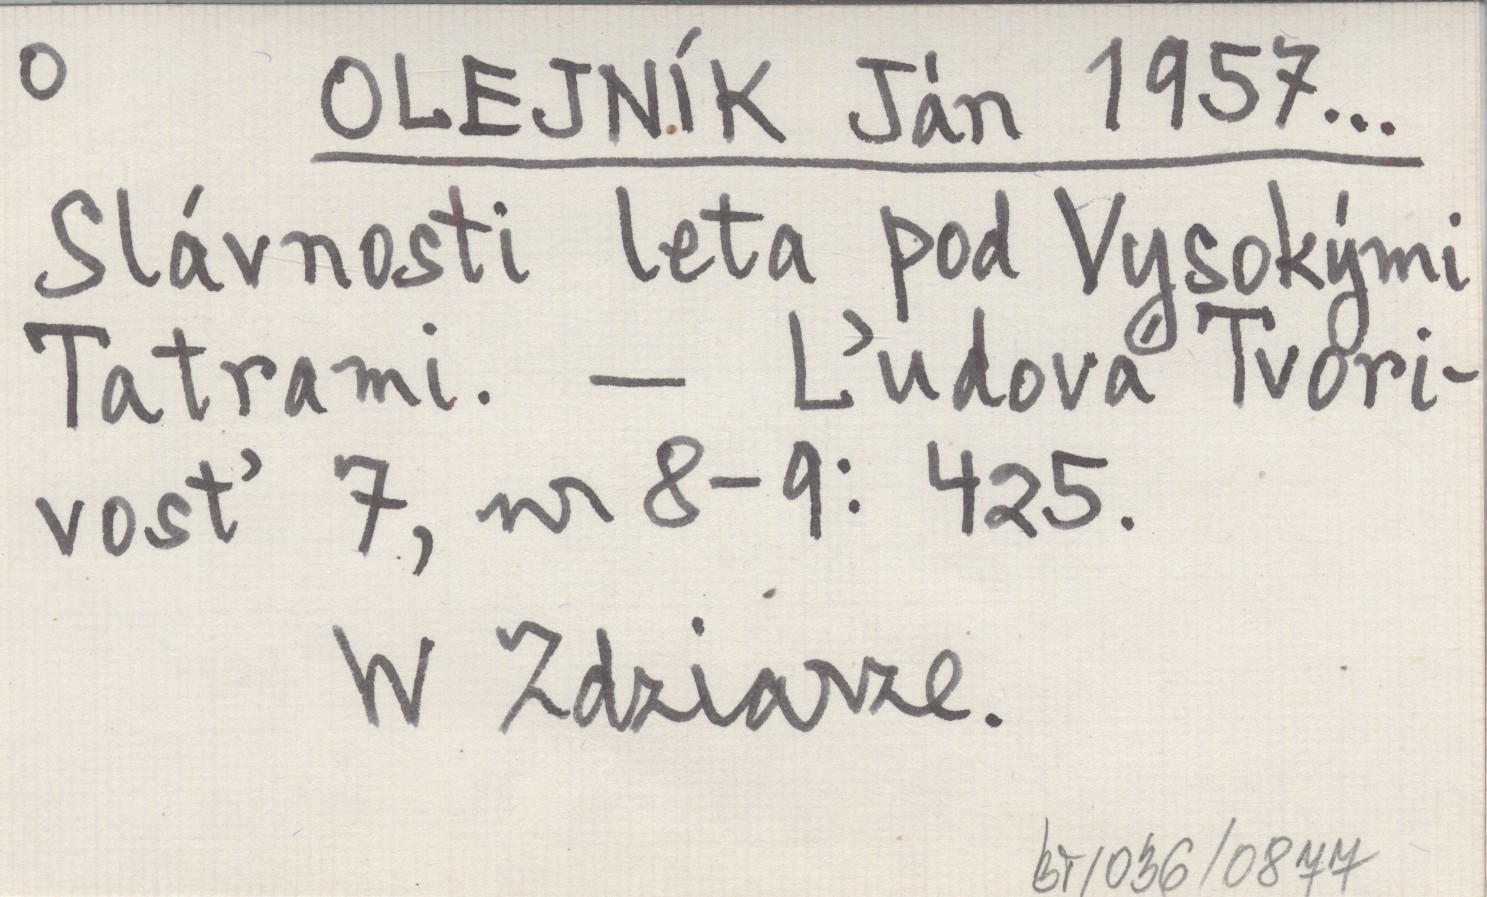 O
OLEJNÍK Ján 1957...
Slávnosti leta pod Vysokými
Tatrami. — Ľudová Tvori-
vosť 7, nr 8-9: 425.
W Zdziarze.
BT/036/0877